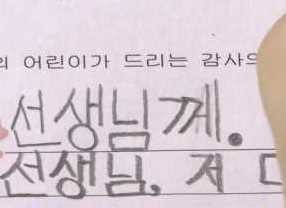 어린이가 드리는 감사의
선생님께.
선생님, 저